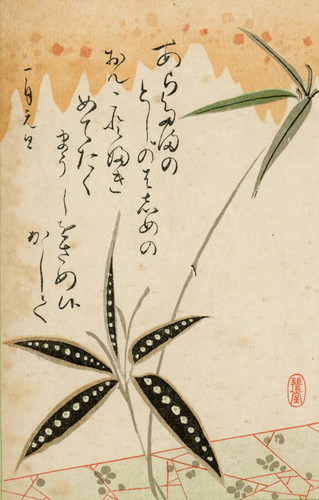 あらたまの
としのはしめの
おんことふき
めてたく
まうしをさめ候
かしく
一月元日